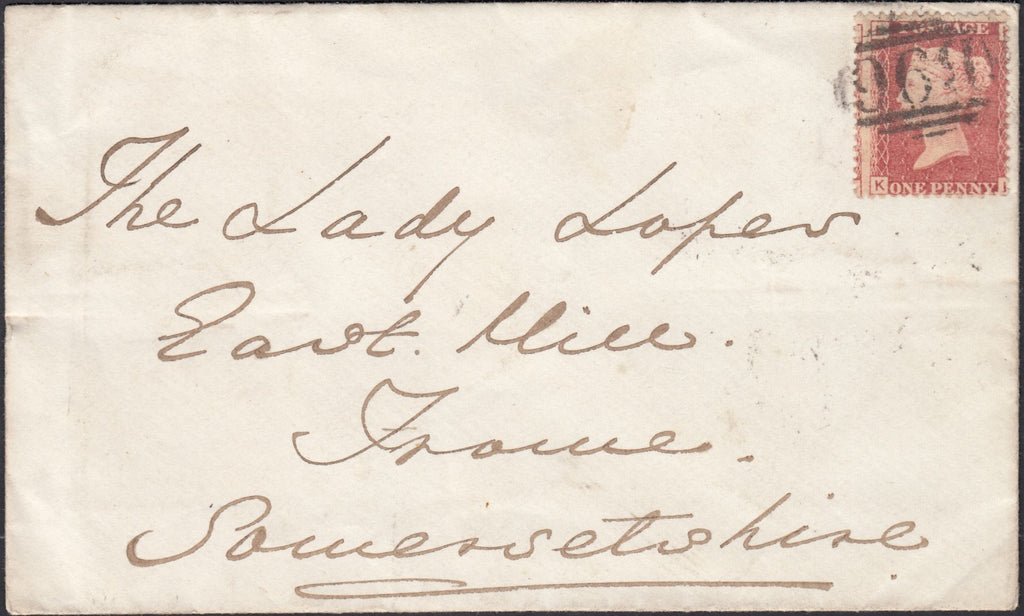 POSTAGE
K ONE PENNY I
The Lady Lopes
East. Hill.
Frome.
Somersetshire